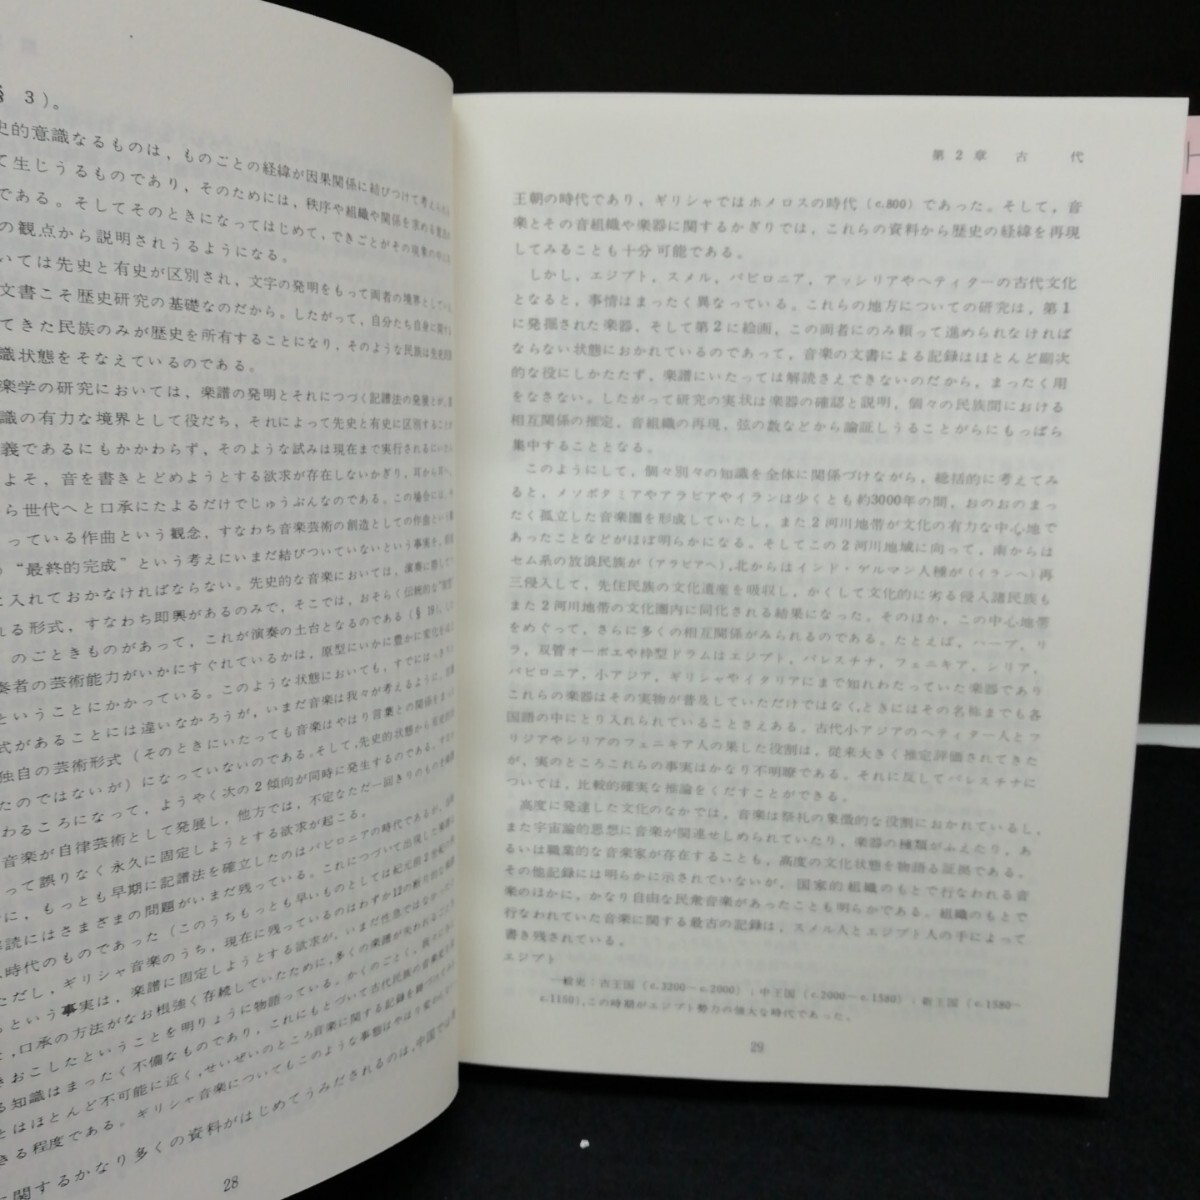 § 3)。
史的意識なるものは，ものごとの経緯が因果関係に結びつけて考えられ
て生じうるものであり，そのためには，秩序や組織や関係を求める
である。そしてそのときになってはじめて，できごとがその現象の
の観点から説明されうるようになる。
いては先史と有史が区別され，文字の発明をもって両者の境界としている
文書こそ歴史研究の基礎なのだから。したがって，自分たち自身に関する
てきた民族のみが歴史を所有することになり，そのような民族は
識状態をそなえているのである。
楽学の研究においては，楽譜の発明とそれにつづく記譜法の発展とが，
識の有力な境界として役だち，それによって先史と有史に区別することが
義であるにもかかわらず，そのような試みは現在まで実行されるに
よそ，音を書きとどめようとする欲求が存在しないかぎり，耳から耳へ，
ら世代へと口承にたよるだけでじゅうぶんなのである。この場合には，
っている作曲という観念，すなわち音楽芸術の創造としての作曲という
“最終的完成”という考えにいまだ結びついていないという事実を，
に入れておかなければならない。先史的な音楽においては，演奏に際して
れる形式，すなわち即興があるのみで，そこでは，おそらく伝統的な“原型”
のごときものがあって，これが演奏の土台となるのである
奏者の芸術能力がいかにすぐれているかは，原型にいかに豊かに変化を
ということにかかっている。このような状態においても，すでにはっきり
式があることには違いなかろうが，いまだ音楽は我々が考えるように，
独自の芸術形式(そのときにいたっても音楽はやはり言葉との関係を
たのではないが)になっていないのである。そして，先史的状態から
わるころになって，ようやく次の2傾向が同時に発生するのである。
音楽が自律芸術として発展し，他方では，不定なただ一回きりのものを
って誤りなく永久に固定しようとする欲求が起こる。
に，もっとも早期に記譜法を確立したのはバビロニアの時代であるが，
解読にはさまざまの問題がいまだ残っている。これにつづいて出現した
時代のものであった(このうちもっとも早いものとしては紀元前2世紀の
ただし，ギリシャ音楽のうち，現在に残っているのはわずか12の断片的な
という事実は，楽譜に固定しようとする欲求が，いまだ性急ではなかった
，口承の方法がなお根強く存続していたために，多くの楽譜が失われる
きおこしたということを明りょうに物語っている。かくのごとく，我々に
る知識はまったく不備なものであり，これにもとづいて古代民族の音楽
とはほとんど不可能に近く，せいぜいのところ音楽に関する記録を
きる程度である。ギリシャ音楽についてもこのような事態はやはり変わらない
に関するかなり多くの資料がはじめてうみだされるのは，中国では
28
第2章　古　　代
王朝の時代であり，ギリシャではホメロスの時代(c.800)であった。そして，音
楽とその音組織や楽器に関するかぎりでは，これらの資料から歴史の経緯を再現
してみることも十分可能である。
しかし，エジプト，スメル，バビロニア，アッシリアやヘティターの古代文化
となると，事情はまったく異なっている。これらの地方についての研究は，第1
に発掘された楽器，そして第2に絵画，この両者にのみ頼って進められなければ
ならない状態におかれているのであって，音楽の文書による記録はほとんど副次
的な役にしかたたず，楽譜にいたっては解読さえできないのだから，まったく用
をなさない。したがって研究の実状は楽器の確認と説明，個々の民族間における
相互関係の推定，音組織の再現，弦の数などから論証しうることがらにもっぱら
集中することとなる。
このようにして，個々別々の知識を全体に関係づけながら，総括的に考えてみ
ると，メソポタミアやアラビアやイランは少くとも約3000年の間，おのおのまっ
たく孤立した音楽圏を形成していたし，また2河川地帯が文化の有力な中心地で
あったことなどがほぼ明らかになる。そしてこの2河川地域に向って，南からは
セム系の放浪民族が(アラビアへ)，北からはインド・ゲルマン人種が(イランへ)再
三侵入して，先住民族の文化遺産を吸収し，かくして文化的に劣る侵入諸民族も
また2河川地帯の文化圏内に同化される結果になった。そのほか，この中心地帯
をめぐって，さらに多くの相互関係がみられるのである。たとえば，ハープ，リ
ラ，双管オーボエや枠型ドラムはエジプト，パレスチナ，フェニキア，シリア，
バビロニア，小アジア，ギリシャやイタリアにまで知れわたっていた楽器であり
これらの楽器はその実物が普及していただけではなく，ときにはその名称までも各
国語の中にとり入れられていることさえある。古代小アジアのヘティター人とフ
リジアやシリアのフェニキア人の果した役割は，従来大きく推定評価されてきた
が，実のところこれらの事実はかなり不明瞭である。それに反してパレスチナに
ついては，比較的確実な推論をくだすことができる。
高度に発達した文化のなかでは，音楽は祭礼の象徴的な役割におかれているし，
また宇宙論的思想に音楽が関連せしめられていたり，楽器の種類がふえたり，あ
るいは職業的な音楽家が存在することも，高度の文化状態を物語る証拠である。
その他記録には明らかに示されていないが，国家的組織のもとで行なわれる音
楽のほかに，かなり自由な民衆音楽があったことも明らかである。組織のもとで
行なわれていた音楽に関する最古の記録は，スメル人とエジプト人の手によって
書き残されている。
エジプト
一般史：古王国(c.3200－c.2000)；中王国(c.2000－c.1580)；新王国(c.1580－
c.1150)，この時期がエジプト勢力の強大な時代であった。
29